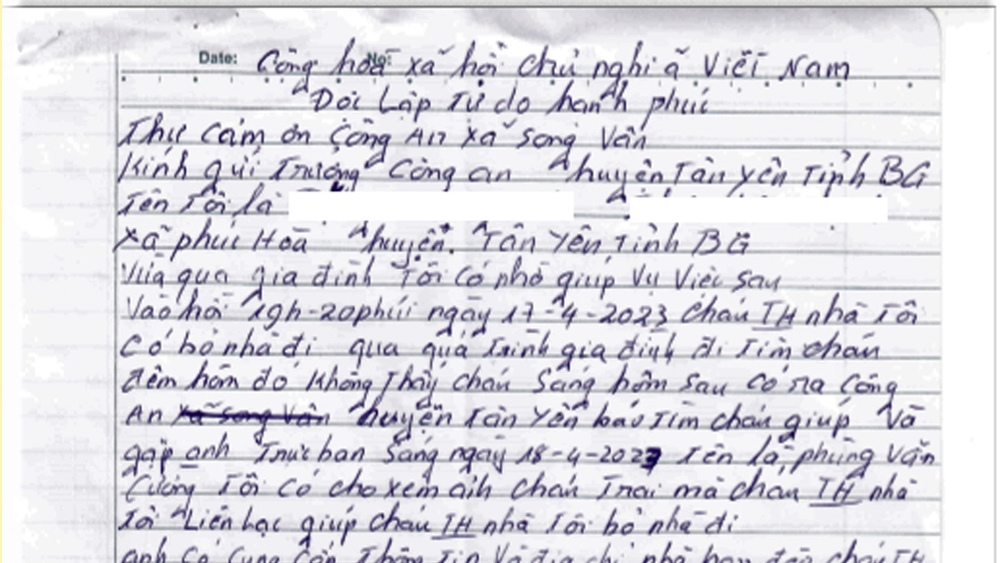 Date: No:
Cộng hoà xã hội chủ nghĩa Việt Nam
Độc Lập Tự do hạnh phúc
Thư cảm ơn Công An xã Song Vân
Kính gửi Trưởng Công an huyện Tân yên Tỉnh BG
Tên Tôi là
xã phúc Hoà huyện. Tân Yên Tỉnh BG
Vừa qua gia đình Tôi có nhờ giúp Vụ Việc sau
Vào hồi 19h-20phút ngày 17-4-2023 cháu TH nhà Tôi
có bỏ nhà đi qua quá Trình gia đình đi Tìm cháu
đêm hôm đó không Thấy cháu Sáng hôm sau có ra Công
An xã Song Vân huyện Tân Yên báo Tìm cháu giúp Và
gặp anh Trực ban Sáng ngày 18-4-2023 Tên là phùng Văn
Cường Tôi có cho xem ảnh cháu Trai mà cháu TH nhà
Tôi Liên hạc giúp cháu TH nhà Tôi bỏ nhà đi
anh có Cung Cấp Thông Tin Và địa chỉ nhà bạn cháu TH